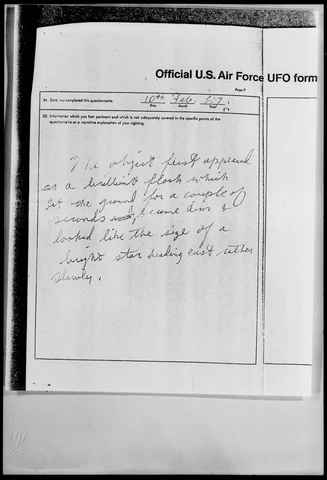 Page 7
Official U.S. Air Force UFO form
24. Date you completed this questionnaire:
10th Feb. 67.
Day Month Year
25. Information which you feel pertinent and which is not adequately covered in the specific points of the
questionnaire or a narrative explanation of your sighting.
The object first appeared
as a brilliant flash which
lit the ground for a couple of
seconds and, became dim &
looked like the size of a
bright star heading east rather
slowly.